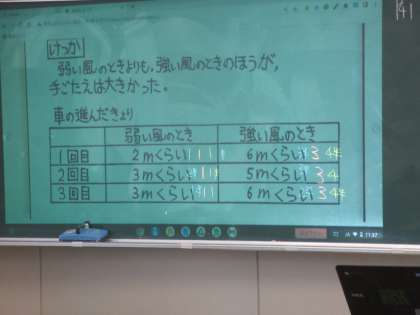 けっか
弱い風のときよりも、強い風のときのほうが、
手ごたえは大きかった。
車の進んだきょり
弱い風のとき 強い風のとき
1回目 2mくらい 6mくらい
2回目 3mくらい 5mくらい
3回目 3mくらい 6mくらい
11:37